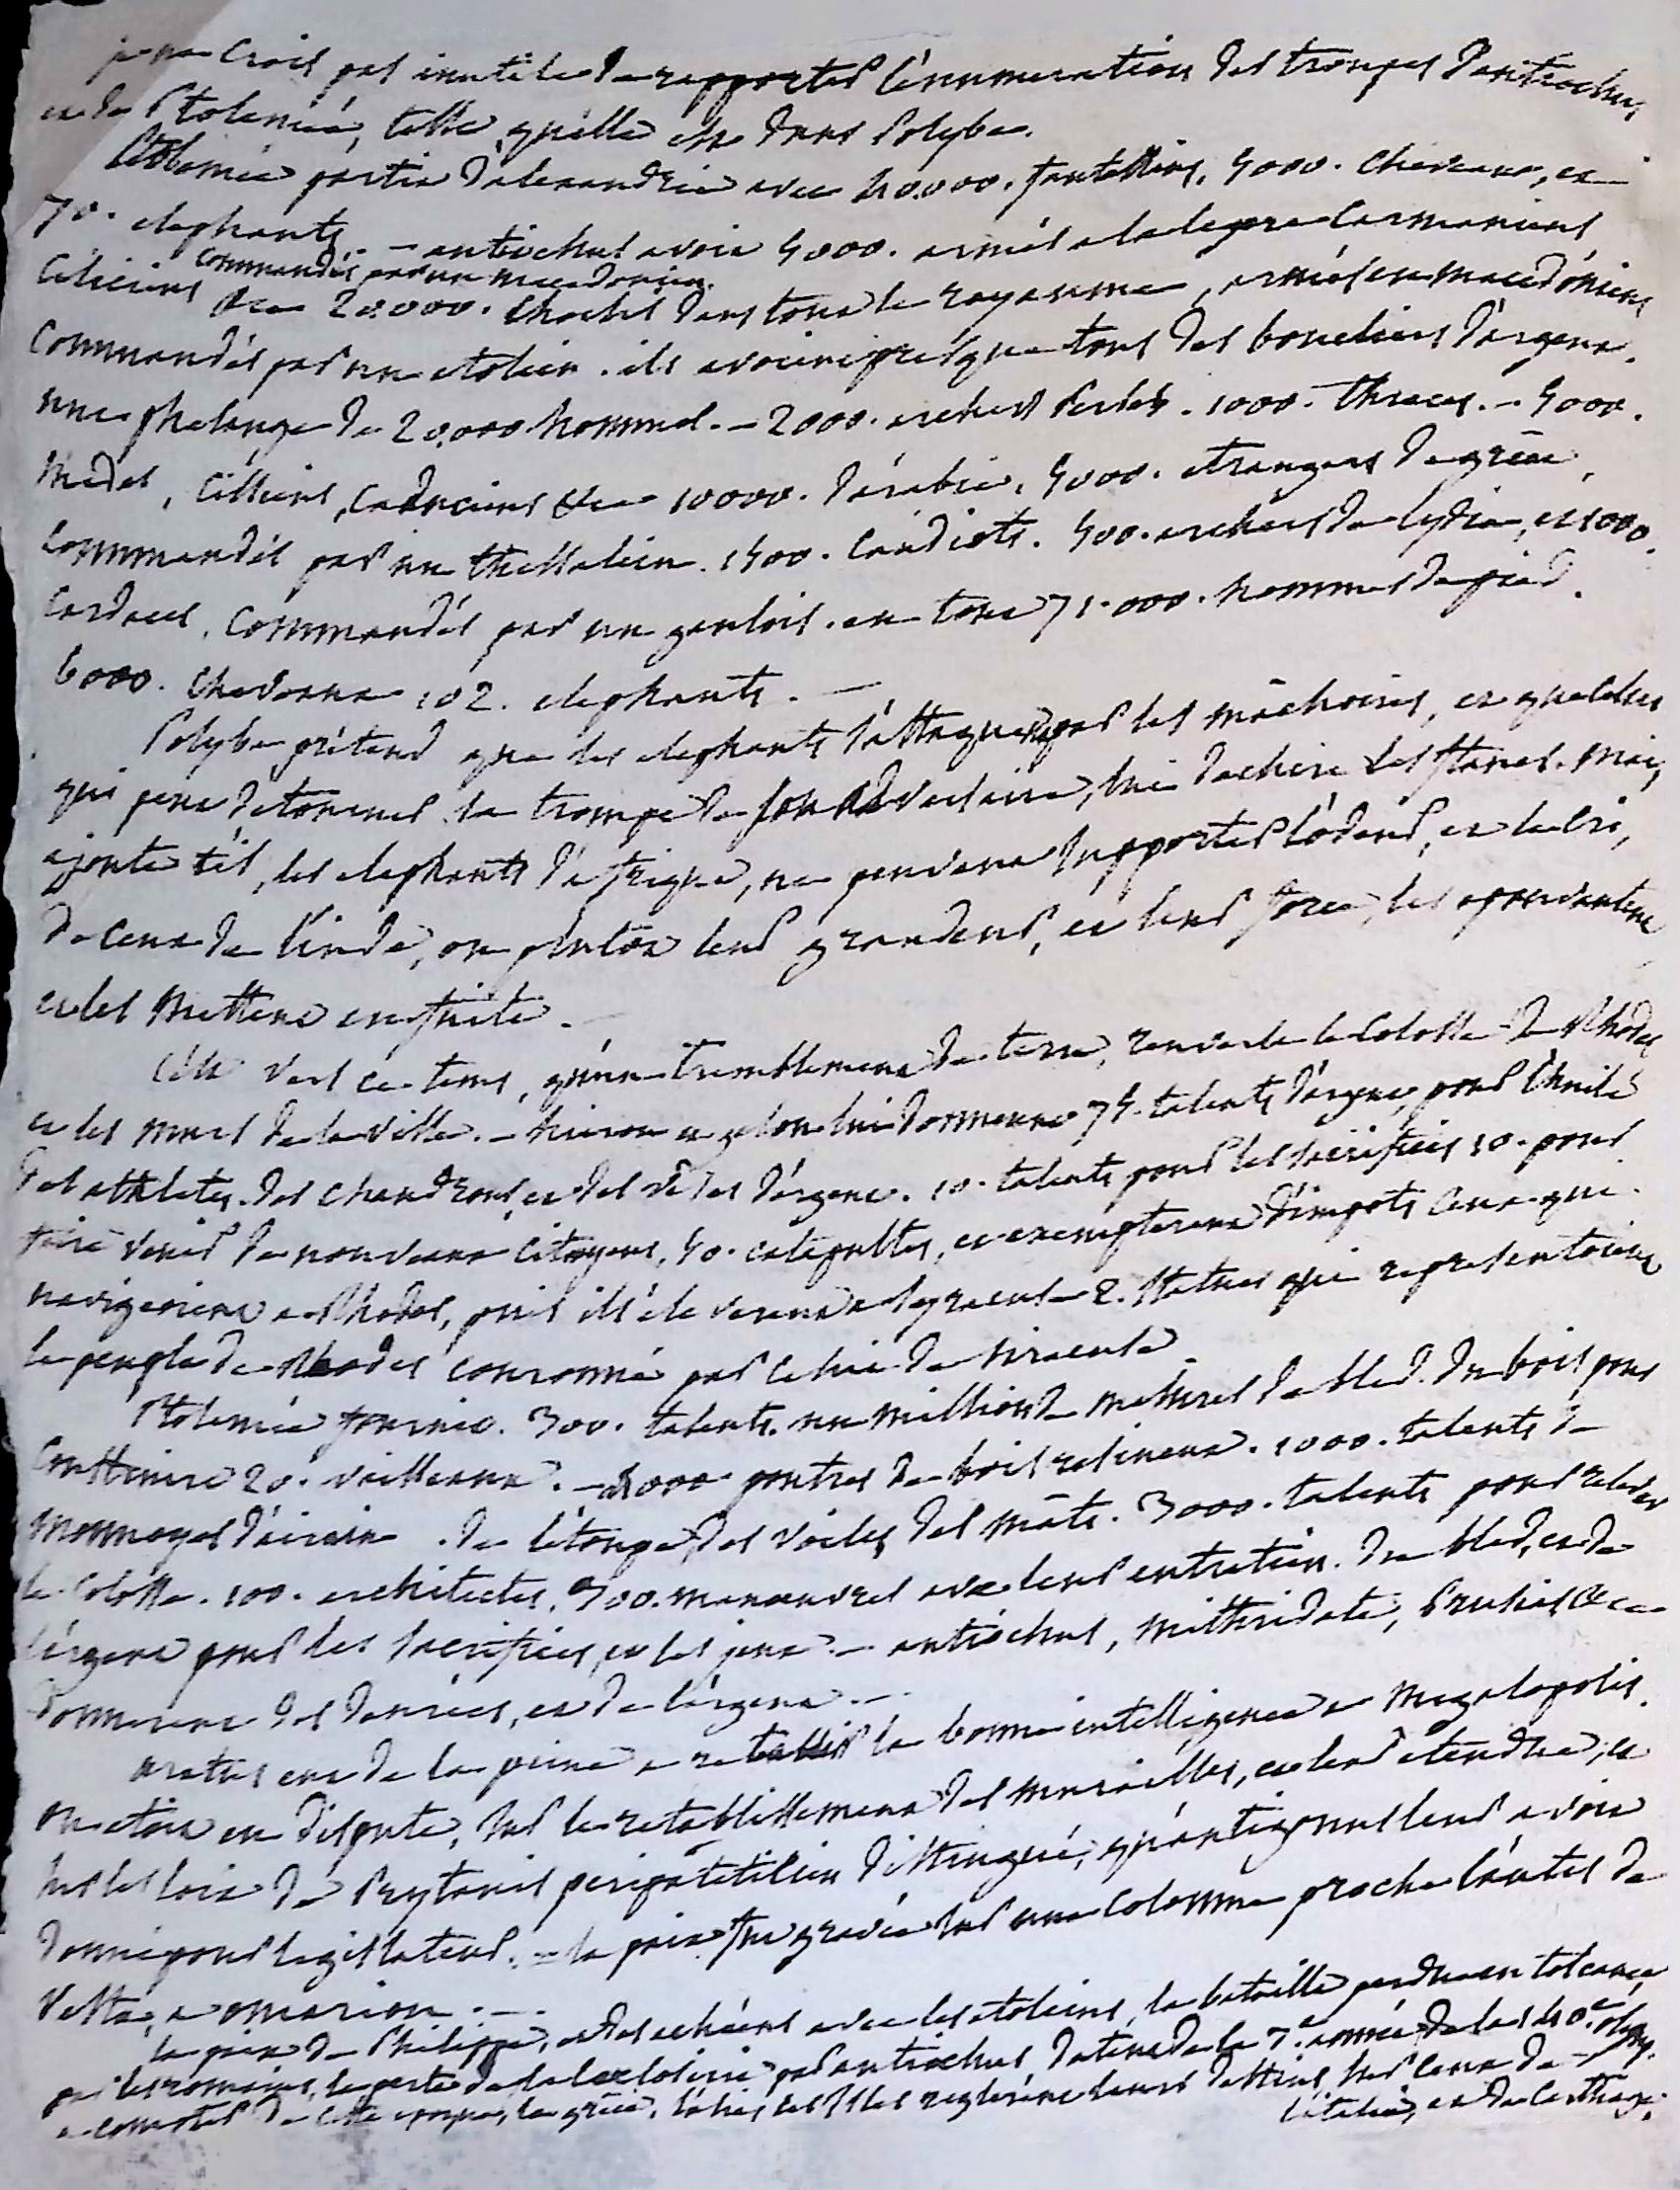 je ne crois pas inutile de rapporter l'énumeration des troupes d'antiochus,
et de Ptolemée, telle, qu'elle est dans Polybe.
Ptolemée partit d'alexandrie avec 40.000. fantassins, 5000. chevaux, et
70. elephants. - antiochus avoit 5000. armés a la legere Carmaniens
Ciliciens commandés par un macedonien.
&c 20.000. choisis dans tout le royaume, armés en macedoniens
commandés par un etolien. ils avoient presque tous des boucliers d'argent.
une phalange de 20,000 hommes. - 2000. archers Perses. 1000. Thraces. - 5000.
Medes, Cissiens, Cadusiens &c 10000. d'arabie, 5000. etrangers de grèce,
commandés par un thessalien. 1500. Candiots. 500. archers de lydie, et 1000.
Cardaces, commandés par un gaulois. en tout 71.000. hommes de pied.
6000. chevaux 102. elephants. —
Polybe prétend que les elephants s'attaquent par les mâchoires, et que celui
qui peut detourner la trompe de son adversaire, lui dechire les flancs. mais,
ajoute t'il, les elephants d'afrique, ne peuvent supporter l'odeur, et le cri,
de ceux de l'inde, ou plutôt leur grandeur, et leur force, les epouvantent
et les mettent en fuite. —
C'est vers ce tems, qu'un tremblement de terre, renversa le Colosse de Rhodes
et les murs de la ville. - hieron et gelon lui donnerent 75. talents d'argent, pour l'huile
des athletes. des chaudrons, et des vases d'argent. 10. talents pour les sacrifices 10. pour
faire venir de nouveaux citoyens, 50. catapultes, et exempterent d'impots ceux qui
navigeoient a Rhodes, puis ils éleverent a syracuse 2. statues qui representoient
le peuple de Rhodes couronné par celui de siracuse.
Ptolemée fournit. 300. talents. un million de mesures de bled. du bois pour
construire 20. vaisseaux. - 4000 poutres de bois resineux. 1000. talents de
monnoyes d'airain. de l'étoupe, des voiles, des mâts. 3000. talents pour relever
le Colosse. 100. architectes, 300. manoeuvres avec leur entretien. du bled, et de
l'argent pour les sacrifices, et les jeux. - antiochus, mithridate, Prusias &c
donnerent des denrées, et de l'argent. —
aratus eut de la peine a retablir la bonne intelligence a Megalopolis.
on etoit en dispute, sur le retablissement des murailles, et leur etendue, et
sur les loix de Prytanis peripateticien distingué, qu'antigonus leur avoit
donné pour legislateur. - la paix fut gravée sur une colonne proche l'autel de
Vesta, a omarion. —
la paix de Philippe, et des achéens avec les etoliens, la bataille perdue en toscane,
par les romains, la perte de la coelosirie par antiochus datent de la 3.e année de la 140.e olymp.
a compter de cette epoque, la grèce, l'asie, les isles reglerent leurs destins sur ceux de
l'italie, et de Carthage.